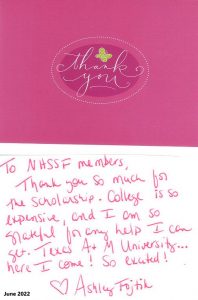 thank
you
To NHSSF members,
Thank you so much for
the scholarship. College is so
expensive, and I am so
grateful for any help I can
get. Texas A+M University...
here I come! So excited!
♡ Ashley Fojtik
June 2022